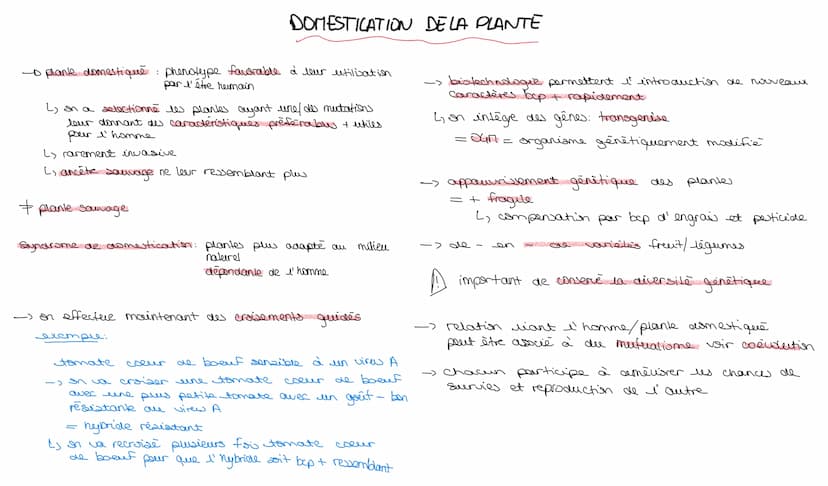 DOMESTICATION DE LA PLANTE
→ plante domestiqué : phenotype favorable à leur utilisation
par l'être humain
↳ on a selectionné les plantes ayant une/des mutations
leur donnant des caractéristiques préférables + utiles
pour l'homme
↳ rarement invasive
↳ ancête sauvage ne leur ressemblant plus
≠ plante sauvage
Syndrome de domestication : plantes plus adapté au milieu
naturel
dépendante de l'homme
→ on effectue maintenant des croisements guidés
exemple:
tomate coeur de boeuf sensible à un virus A
→ on va croiser une tomate coeur de boeuf
avec une plus petite tomate avec un goût - bon
résistante au virus A
= hybride résistant
↳ on va recroisé plusieurs fois tomate coeur
de boeuf pour que l'hybride soit bcp + ressemblant
→ biotechnologie permettent l'introduction de nouveaux
caractères bcp + rapidement
↳ on intège des gênes: transgenèse
= OGM = organisme génétiquement modifié
→ appauvrissement génétique des plantes
= + fragile
↳ compensation par bcp d'engrais et pesticide
→ de - en - de variétés fruit/légumes
⚠ important de conservé la diversité génétique
→ relation liant l'homme/plante domestiqué
peut être associé à du mutualisme voir coévolution
→ chacun participe à améliorer les chances de
survies et reproduction de l'autre